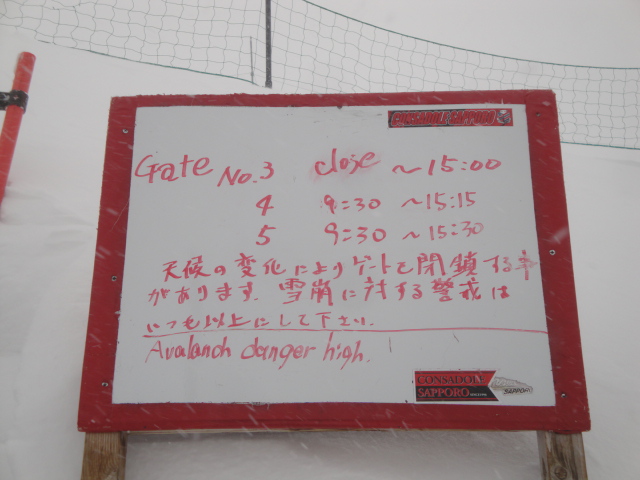 CONSADOLE SAPPORO
Gate No.3 close ~15:00
4 9:30 ~15:15
5 9:30 ~15:30
天候の変化によりゲートを閉鎖する事
があります。雪崩に対する警戒は
いつも以上にして下さい.
Avalanch danger high.
CONSADOLE
SAPPORO
SAPPORO